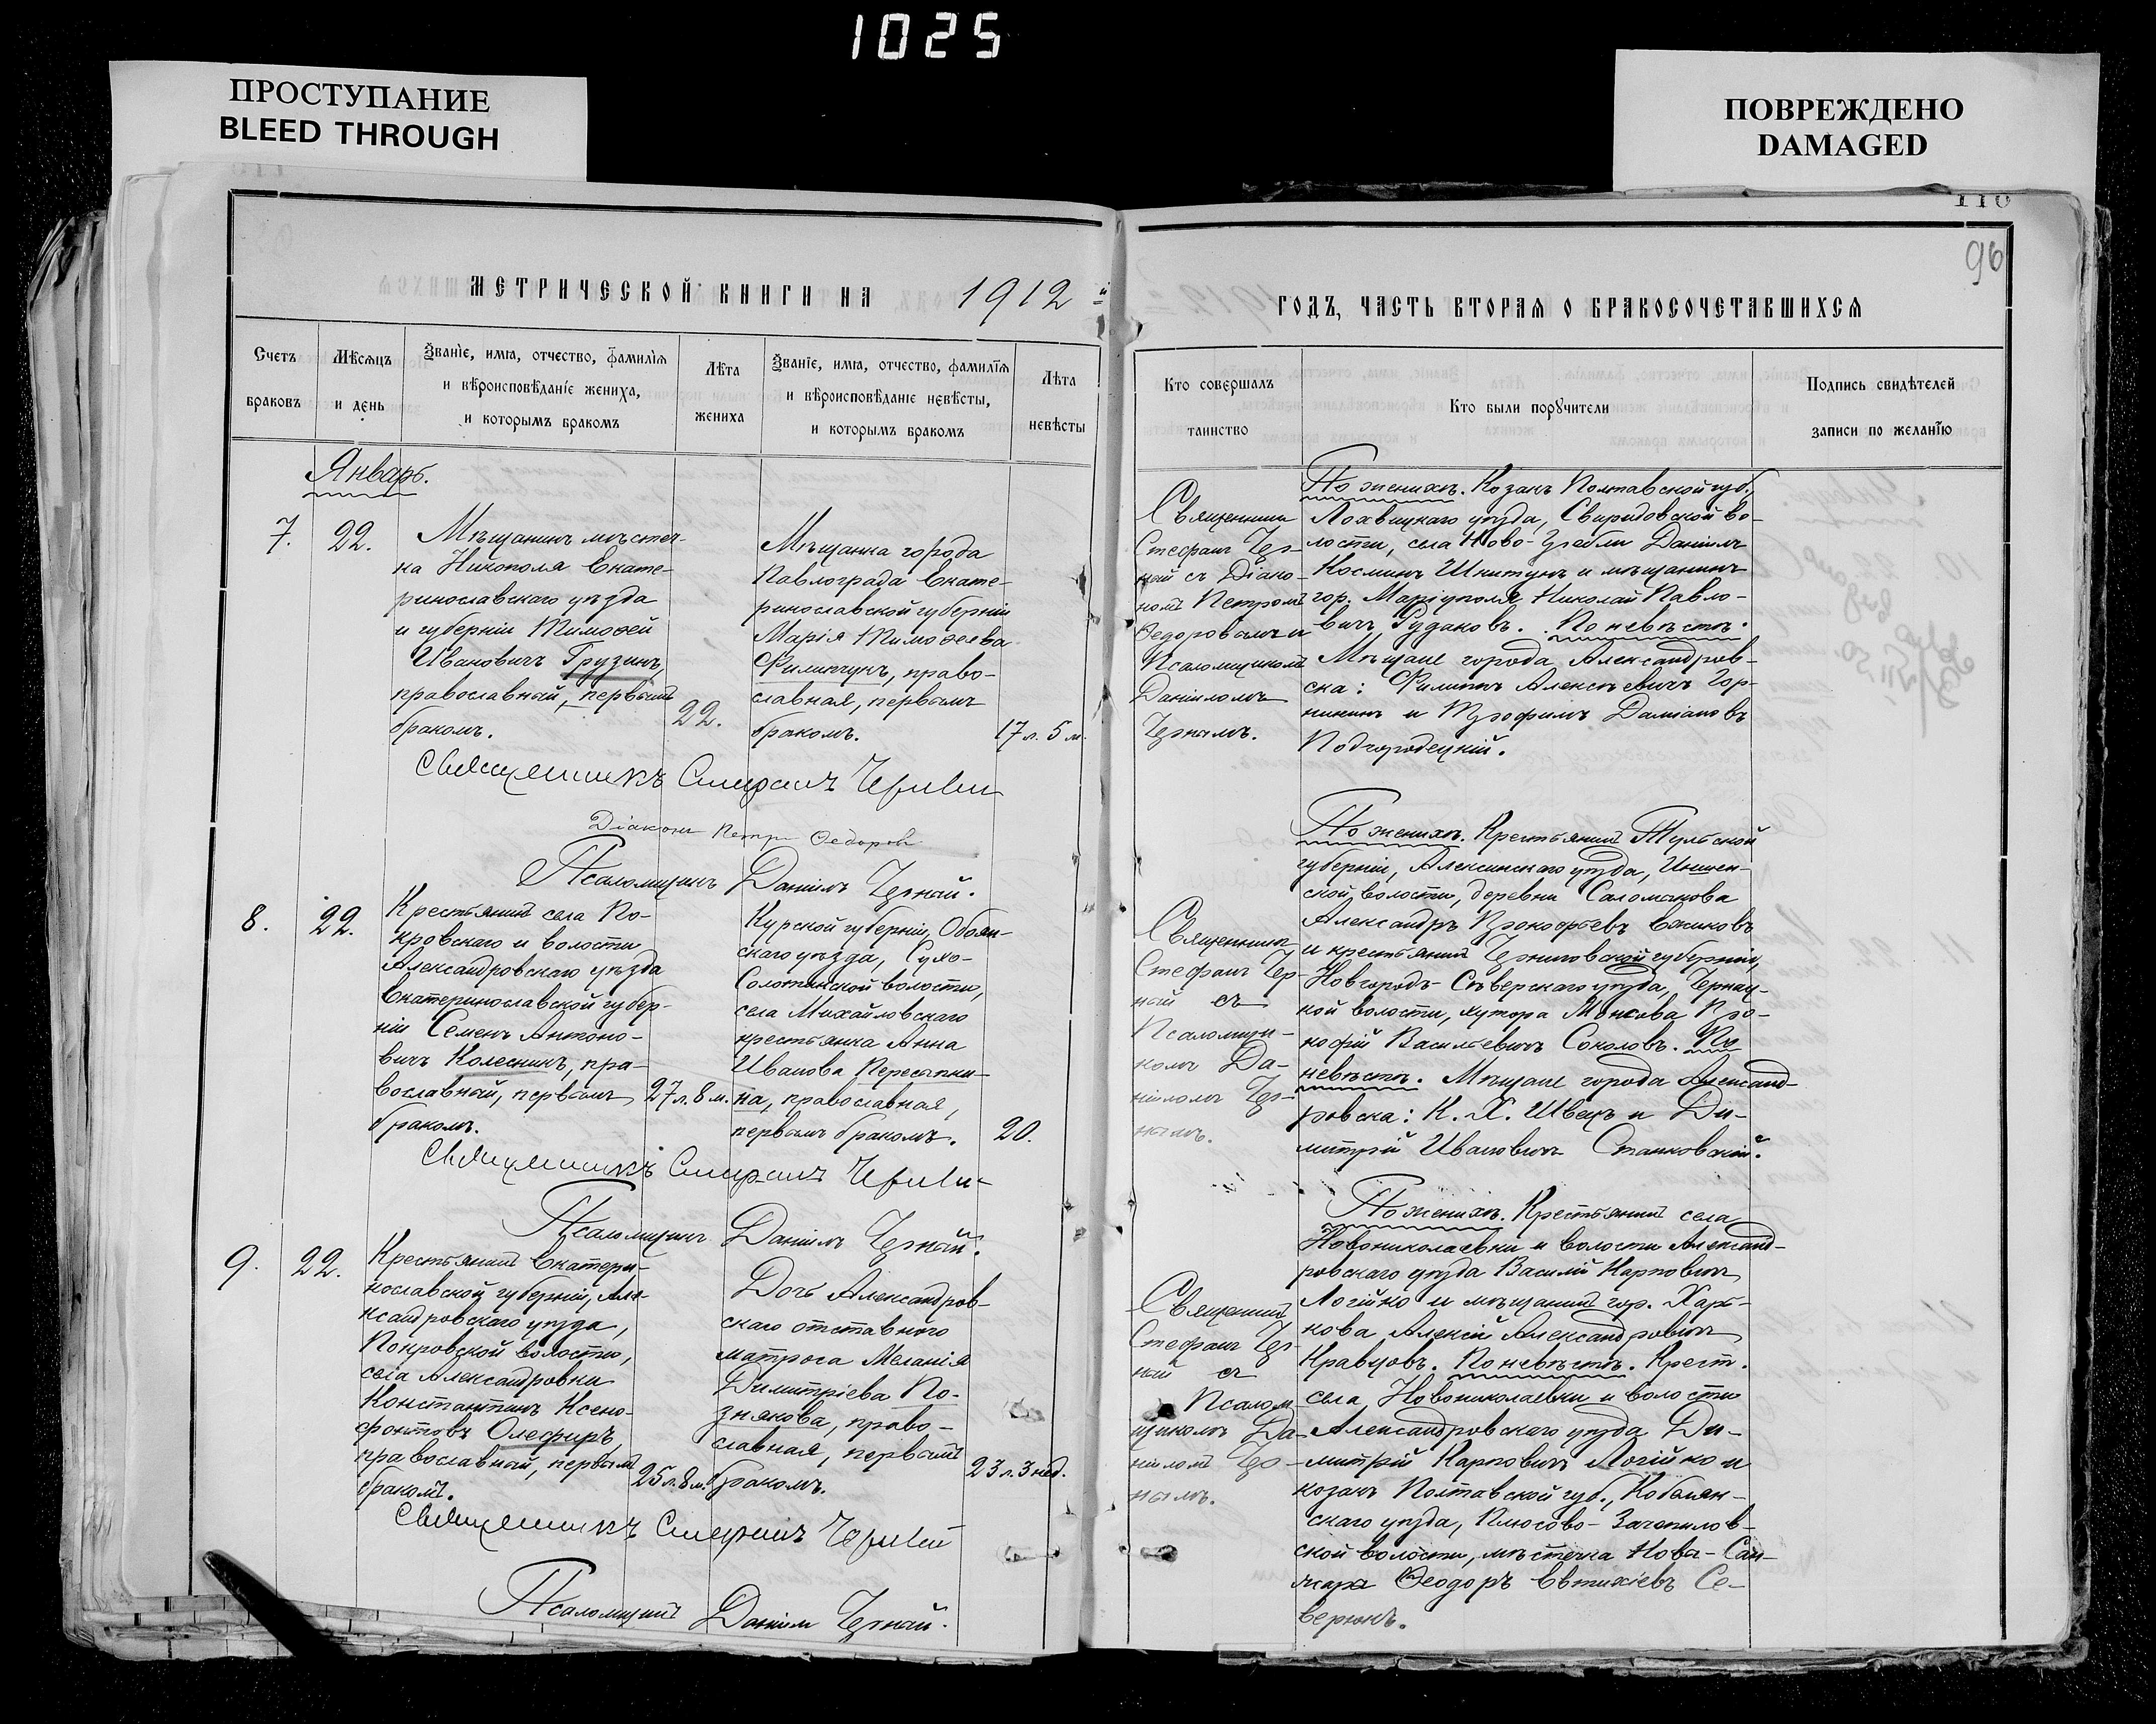 1025
ПРОСТУПАНИЕ
BLEED THROUGH
ПОВРЕЖДЕНО
DAMAGED
110
96
МЕТРИЧЕСКОЙ КНИГИ НА 1912 й
ГОДЪ, ЧАСТЬ ВТОРАЯ О БРАКОСОЧЕТАВШИХСЯ
Счетъ
браковъ
Мѣсяцъ
и день
Званіе, имя, отчество, фамилія
и вѣроисповѣданіе жениха,
и которымъ бракомъ
Лѣта
жениха
Званіе, имя, отчество, фамилія
и вѣроисповѣданіе невѣсты,
и которымъ бракомъ
Лѣта
невѣсты
Кто совершалъ
таинство
Кто были поручители
Подпись свидѣтелей
записи по желанію
Январь.
7.
22.
Мѣщанинъ мѣстеч-
ка Никополя Екате-
ринославскаго уѣзда
и губерніи Тимоѳей
Ивановичъ Грузинъ,
православный, первымъ
бракомъ.
22.
Мѣщанка города
Павлограда Екате-
ринославской губерніи
Марія Тимоѳеева
Филипчукъ, право-
славная, первымъ
бракомъ.
17 л. 5 м.
Священникъ Стефанъ Черный
Діаконъ Петръ Ѳедоровъ
Псаломщикъ Даніилъ Черный.
Священникъ
Стефанъ Чер-
ный съ Діако-
номъ Петромъ
Ѳедоровымъ и
Псаломщикомъ
Данiиломъ
Чернымъ.
По женихѣ. Козакъ Полтавской губ.,
Лохвицкаго уѣзда, Свиридовской во-
лости, села Ново-Гребли Даніилъ
Косминъ Шкитунъ и мѣщанинъ
гор. Маріуполя Николай Павло-
вичъ Рудаковъ. По невѣстѣ:
Мѣщане города Александров-
ска: Филиппъ Алексѣевичъ Гор-
никинъ и Трофимъ Даміановъ
Подгородецкій.
8.
22.
Крестьянинъ села По-
кровскаго и волости
Александровскаго уѣзда
Екатеринославской губер-
ніи Семенъ Антоно-
вичъ Колесникъ, пра-
вославный, первымъ
бракомъ.
27 л. 8 м.
Курской губерніи, Обоян-
скаго уѣзда, Сухо-
Солотинской волости,
села Михайловскаго
крестьянка Анна
Иванова Пересыпки-
на, православная,
первымъ бракомъ.
20.
Священникъ Стефанъ Черный
Псаломщикъ Даніилъ Черный.
Священникъ
Стефанъ Чер-
ный съ
Псаломщи-
комъ Да-
ніиломъ Чер-
нымъ.
По женихѣ. Крестьянинъ Тульской
губерніи, Алексинскаго уѣзда,
ской волости, деревни Саломасова
Александръ Прокофьевъ
и крестьянинъ Черниговской губерніи,
Новгородъ-Сѣверскаго уѣзда,
кой волости, хутора Про-
кофій Васильевичъ Соколовъ. По
невѣстѣ. Мѣщане города Александ-
ровска: К. Х. Швецъ и Ди-
митрій Ивановичъ Станковскій.
9.
22.
Крестьянинъ Екатери-
нославской губерніи, Але-
ксандровскаго уѣзда,
Покровской волости,
села Александровки
Константинъ Ксено-
фонтовъ Олефиръ,
православный, первымъ
бракомъ.
25 л. 8 м.
Дочь Александров-
скаго отставного
матроса Меланія
Димитріева По-
знякова, право-
славная, первымъ
бракомъ.
23 л. 3 нед.
Священникъ Стефанъ Черный
Псаломщикъ Даніилъ Черный.
Священникъ
Стефанъ Чер-
ный съ
Псалом-
щикомъ Да-
ніиломъ Чер-
нымъ.
По женихѣ. Крестьянинъ села
Новониколаевки и волости Александ-
ровскаго уѣзда Василій Карповичъ
Логійко и мѣщанинъ гор. Харь-
кова Алексій Александровичъ
Кравцовъ. По невѣстѣ. Крест.
села Новониколаевки и волости
Александровскаго уѣзда Ди-
митрій Карповичъ Логійко и
козакъ Полтавской губ., Кобеляк-
скаго уѣзда, Плюсово-Зачепилов-
ской волости, мѣстечка Нова-Сан-
жара Ѳеодоръ Евтихіевъ Се-
верюнъ.